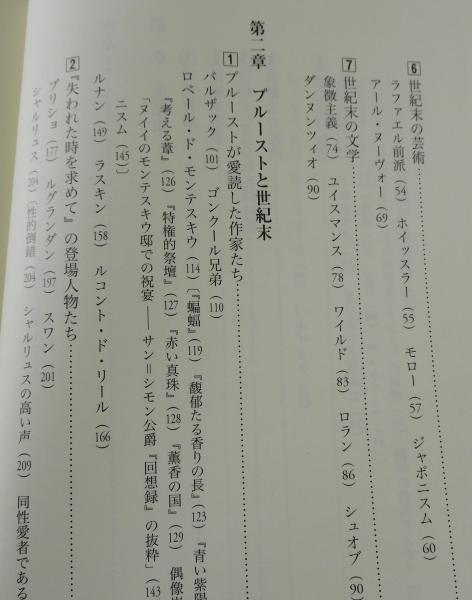 6 世紀末の芸術
ラファエル前派（54） ホイッスラー（55） モロー（57） ジャポニスム（60）
アール・ヌーヴォー（69）
7 世紀末の文学
象徴主義（74） ユイスマンス（78） ワイルド（83） ロラン（86） シュオブ（90）
ダンヌンツィオ（90）
第二章 プルーストと世紀末
1 プルーストが愛読した作家たち
バルザック（101） ゴンクール兄弟（110）
ロベール・ド・モンテスキウ（114）〔『蝙蝠』（119） 『馥郁たる香りの長』（123） 『青い紫陽
『考える葦』（126） 『特権的祭壇』（127） 『赤い真珠』（128） 『薫香の国』（129） 偶像
「ヌイイのモンテスキウ邸での祝宴――サン＝シモン公爵『回想録』の抜粋」（143
ニスム（145）〕
ルナン（149） ラスキン（158） ルコント・ド・リール（166）
2 『失われた時を求めて』の登場人物たち
ブリショ（177） ルグランダン（197） スワン（201）
シャルリュス（204）〔性的倒錯（204） シャルリュスの高い声（209） 同性愛者である